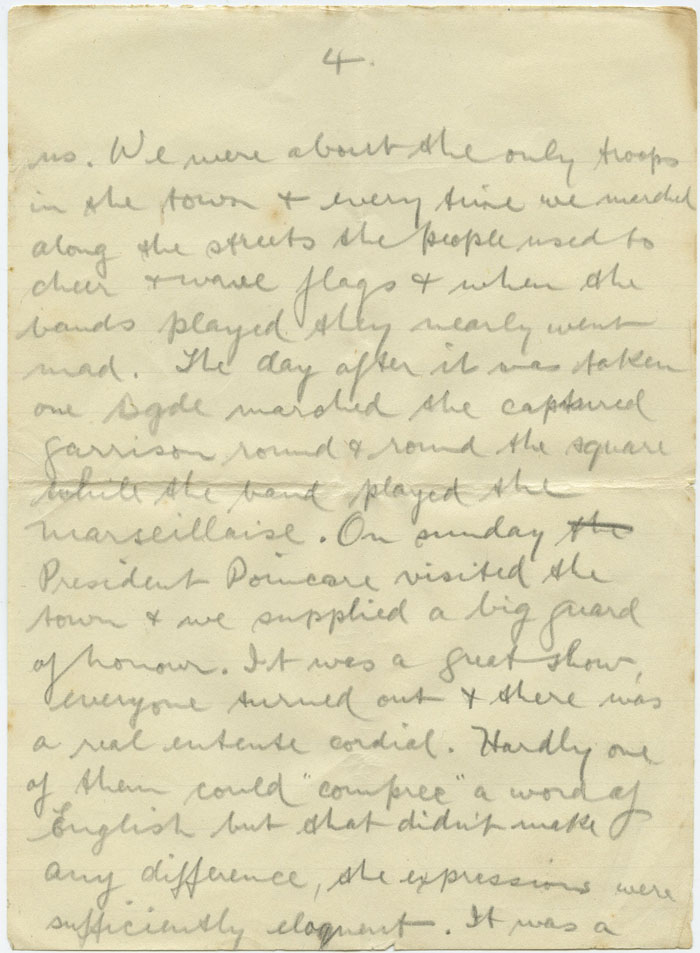 4.
us. We were about the only troops
in the town & every time we marched
along the streets the people used to
cheer & wave flags & when the
bands played they nearly went
mad. The day after it was taken
one Bgde marched the captured
garrison round & round the square
while the band played the
Marseillaise. On sunday the
President Poincare visited the
town & we supplied a big guard
of honour. It was a great show,
everyone turned out & there was
a real entense cordial. Hardly one
of them could "compree" a word of
English but that didn't make
any difference, the expressions were
sufficiently eloquent. It was a